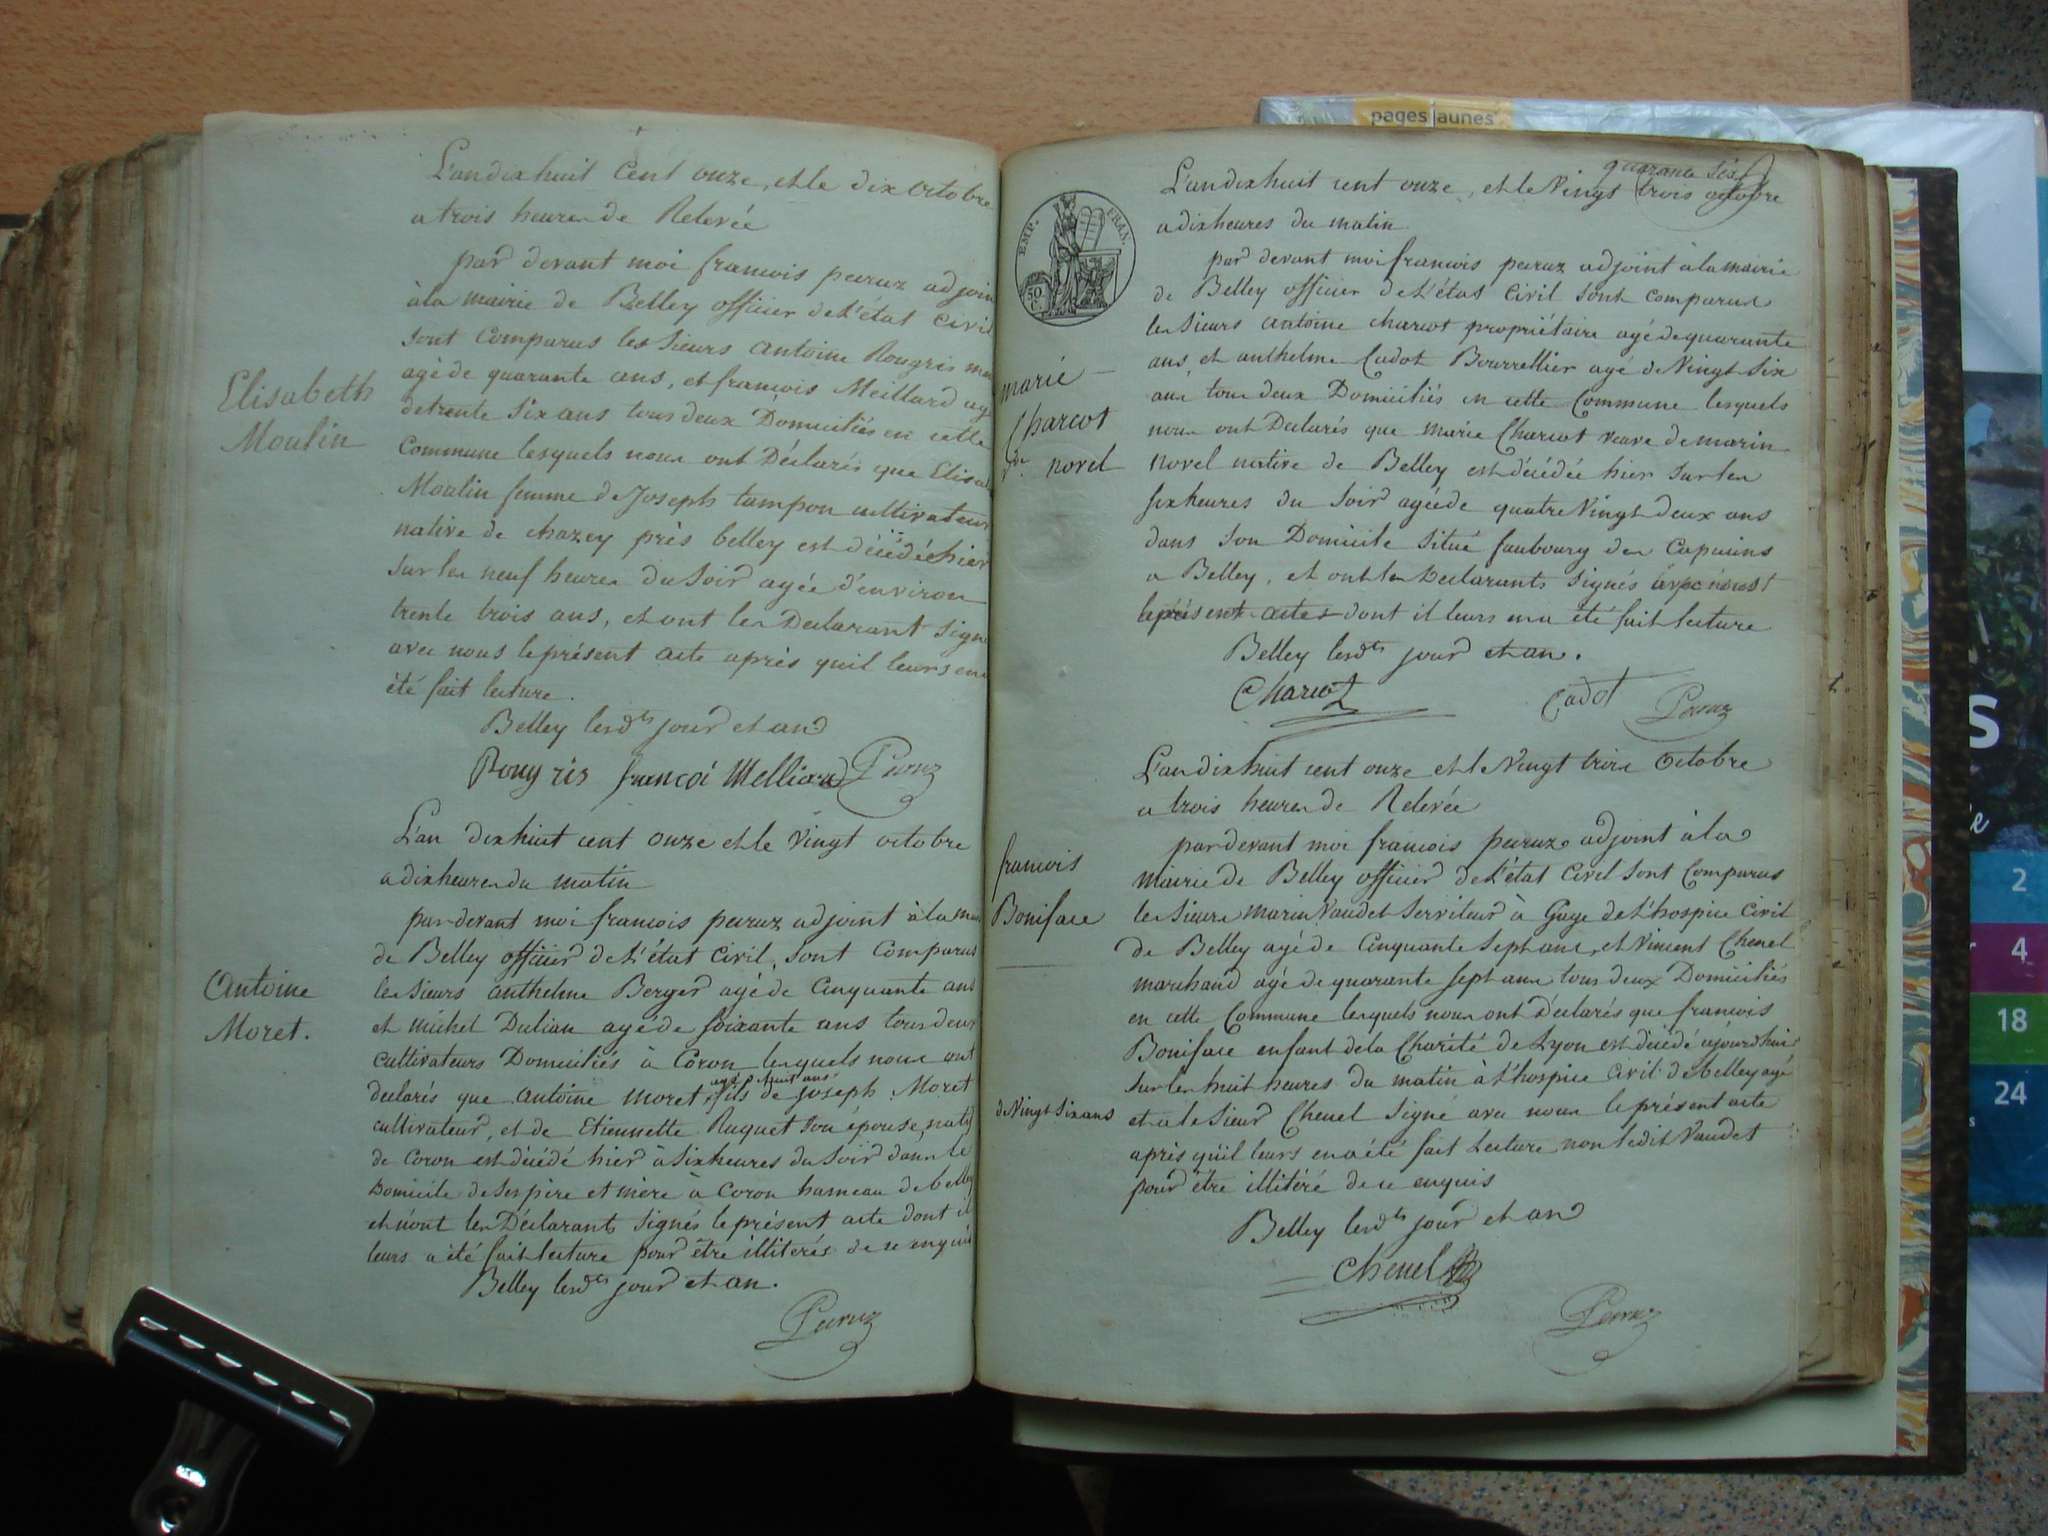 L'an dix huit Cent onze, et le dix octobre
a trois heures de Relevée
par devant moi francois peruz adjoin
à la mairie de Belley officier de L'état Civil
sont Comparus les sieurs antoine Rougris
agé de quarante ans, et francois Meillard ag
de trente six ans tous deux Domiciliés en cette
Commune lesquels nous ont Déclarés que Elisa
Moulin femme de Joseph tampon cultivateur
native de chazey près belley est décédé hier
sur les neuf heures du soir agée d'environ
trente trois ans, et ont les Declarant signé
avec nous le présent acte après quil leurs en
été fait lecture.
Belley lesdts jour et an
Elisabeth
Moulin
Rougris françoi Melliard Peruz
L'an dix huit cent onze et le vingt octobre
a dix heures du matin
par devant moi francois peruz adjoint à la
de Belley officier de L'état Civil, sont Comparus
les sieurs anthelme Berger agé de Cinquante ans
et michel Dulian agé de soixante ans tous deux
cultivateurs Domiciliés à Coron lesquels nous ont
agé d'huit ans
declarés que antoine moret, fils de joseph Moret
cultivateur, et de Etiennette Ruquet son épouse, natif
de Coron est décédé hier à six heures du soir dans le
Domicile de ses père et mère à Coron hameau de belley
et n'ont les Déclarants signés le présent acte dont il
leurs a été fait lecture pour être illiterés de ce enquis
Belley lesdts jour et an.
Antoine
Moret.
Peruz
pages jaunes
quarante six
EMP. FRAN.
50
C.
L'an dix huit cent onze, et le Vingt trois octobre
a dix heures du matin
par devant moi francois peruz adjoint à la mairie
de Belley officier de L'état Civil sont comparus
les sieurs antoine charcot propriétaire agé de quarante
ans, et anthelme Cadot Bourrellier agé de Vingt six
ans tous deux Domiciliés en cette Commune lesquels
nous ont Declarés que marie Charcot veuve de marin
novel native de Belley est décédée hier sur les
six heures du soir agée de quatre Vingt deux ans
dans son Domicile situé faubourg des Capucins
a Belley, et ont les Declarants signés avec nous
le présent acte dont il leurs en a été fait lecture
Belley lesdts jour et an.
marie
Charcot
ve. novel
Charcot Cadot Peruz
L'an dix huit cent onze et le Vingt trois Octobre
a trois heures de Relevée
par devant moi francois peruz adjoint à la
mairie de Belley officier de L'état Civil sont Comparus
les sieurs marin Vaudet serviteur à Gage de L'hospice Civil
de Belley agé de Cinquante sept ans, et Vincent Chenel
marchand agé de quarante sept ans tous deux Domiciliés
en cette Commune lesquels nous ont déclarés que francois
Boniface enfant de la Charité de Lyon est décédé ajourd'hui
sur les huit heures du matin à L'hospice Civil de belley agé
de Vingt six ans
et a le sieur Chenel signé avec nous le présent acte
après qu'il leurs en a été fait Lecture non ledit Vaudet
pour être illitéré de ce enquis
Belley lesdts jour et an
francois
Boniface
Chenel
Peruz
s
e
2
4
18
24